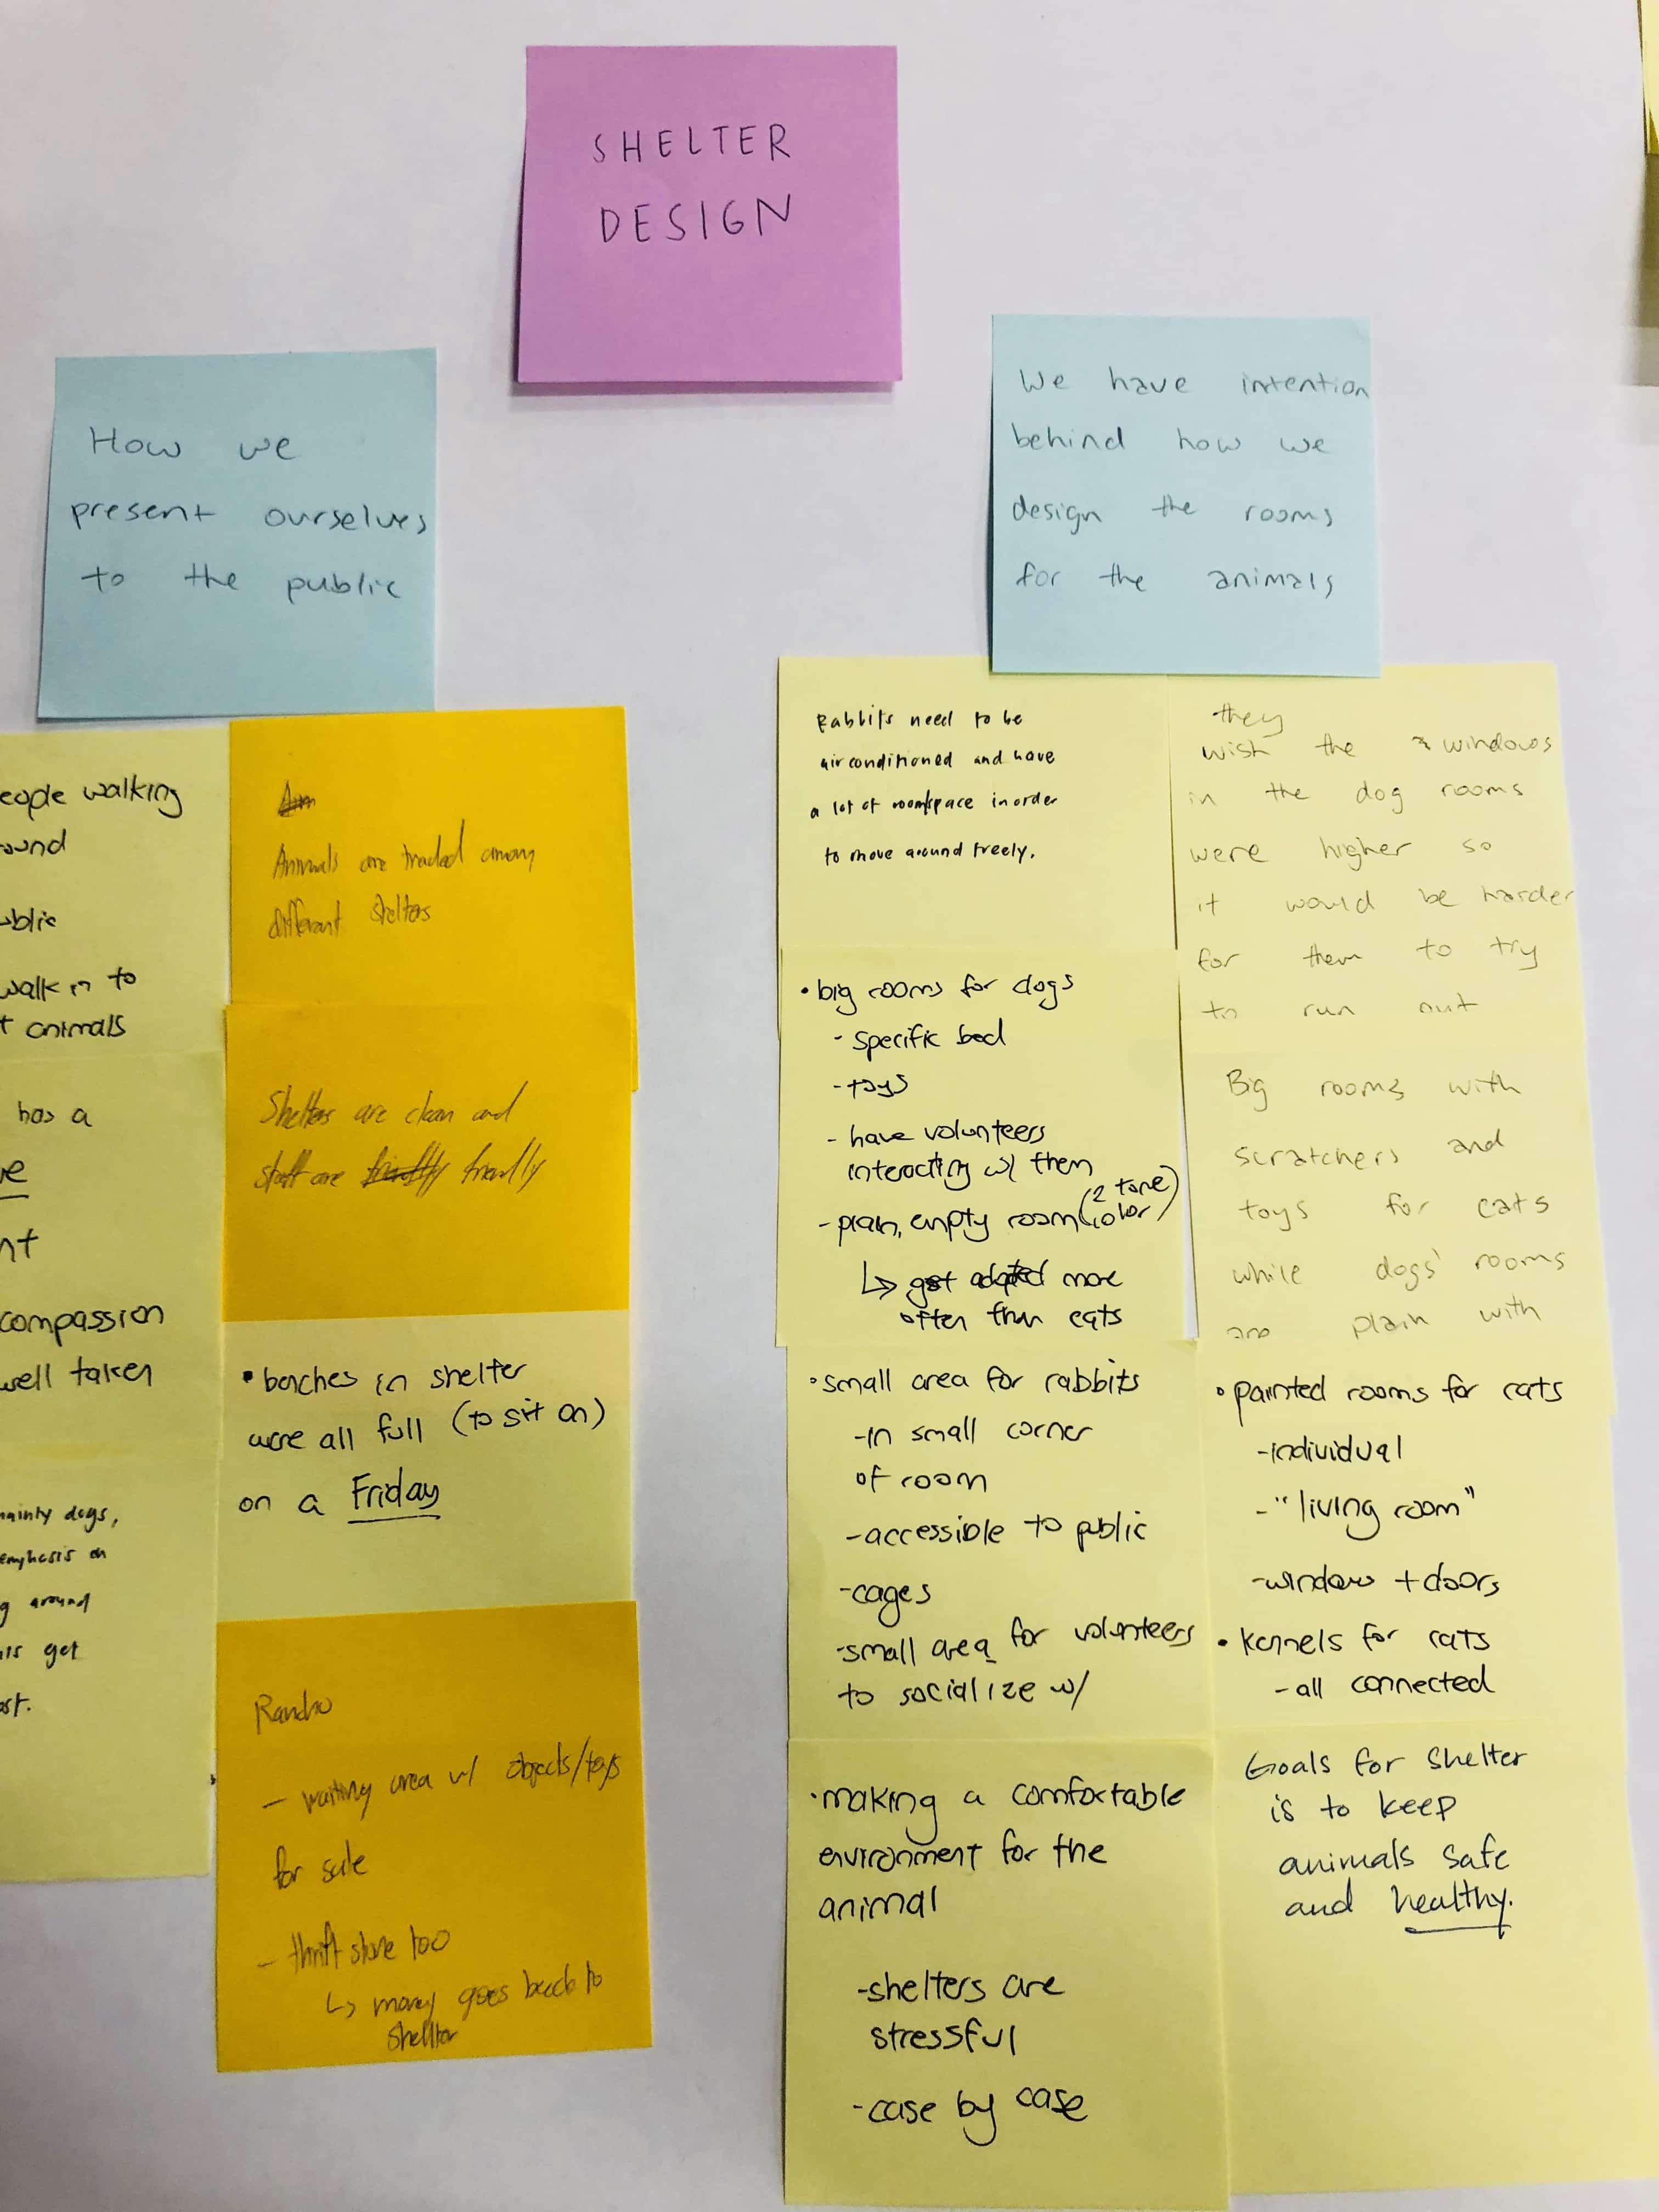 SHELTER
DESIGN
How we
present ourselves
to the public
We have intention
behind how we
design the rooms
for the animals
eople walking
ound
ublic
walk in to
t animals
has a
ve
nt
compassion
well taken
mainly dogs,
emphasis on
g around
get
ast.
Animals are traded among
different shelters
Shelters are clean and
staff are friendly friendly
• benches in shelter
were all full (to sit on)
on a Friday
Rancho
– waiting area w/ objects/toys
for sale
– thrift store too
↳ money goes back to
shelter
Rabbits need to be
air conditioned and have
a lot of room/space in order
to move around freely.
• big rooms for dogs
- specific bed
- toys
- have volunteers
interacting w/ them
- plain, empty room (2 tone color)
↳ get adopted more
often than cats
• small area for rabbits
- in small corner
of room
- accessible to public
- cages
- small area for volunteers
to socialize w/
• making a comfortable
environment for the
animal
- shelters are
stressful
- case by case
they
wish the windows
in the dog rooms
were higher so
it would be harder
for them to try
to run out
Big rooms with
scratchers and
toys for cats
while dogs' rooms
are plain with
• painted rooms for cats
- individual
- "living room"
- window + doors
• kennels for cats
- all connected
Goals for shelter
is to keep
animals safe
and healthy.